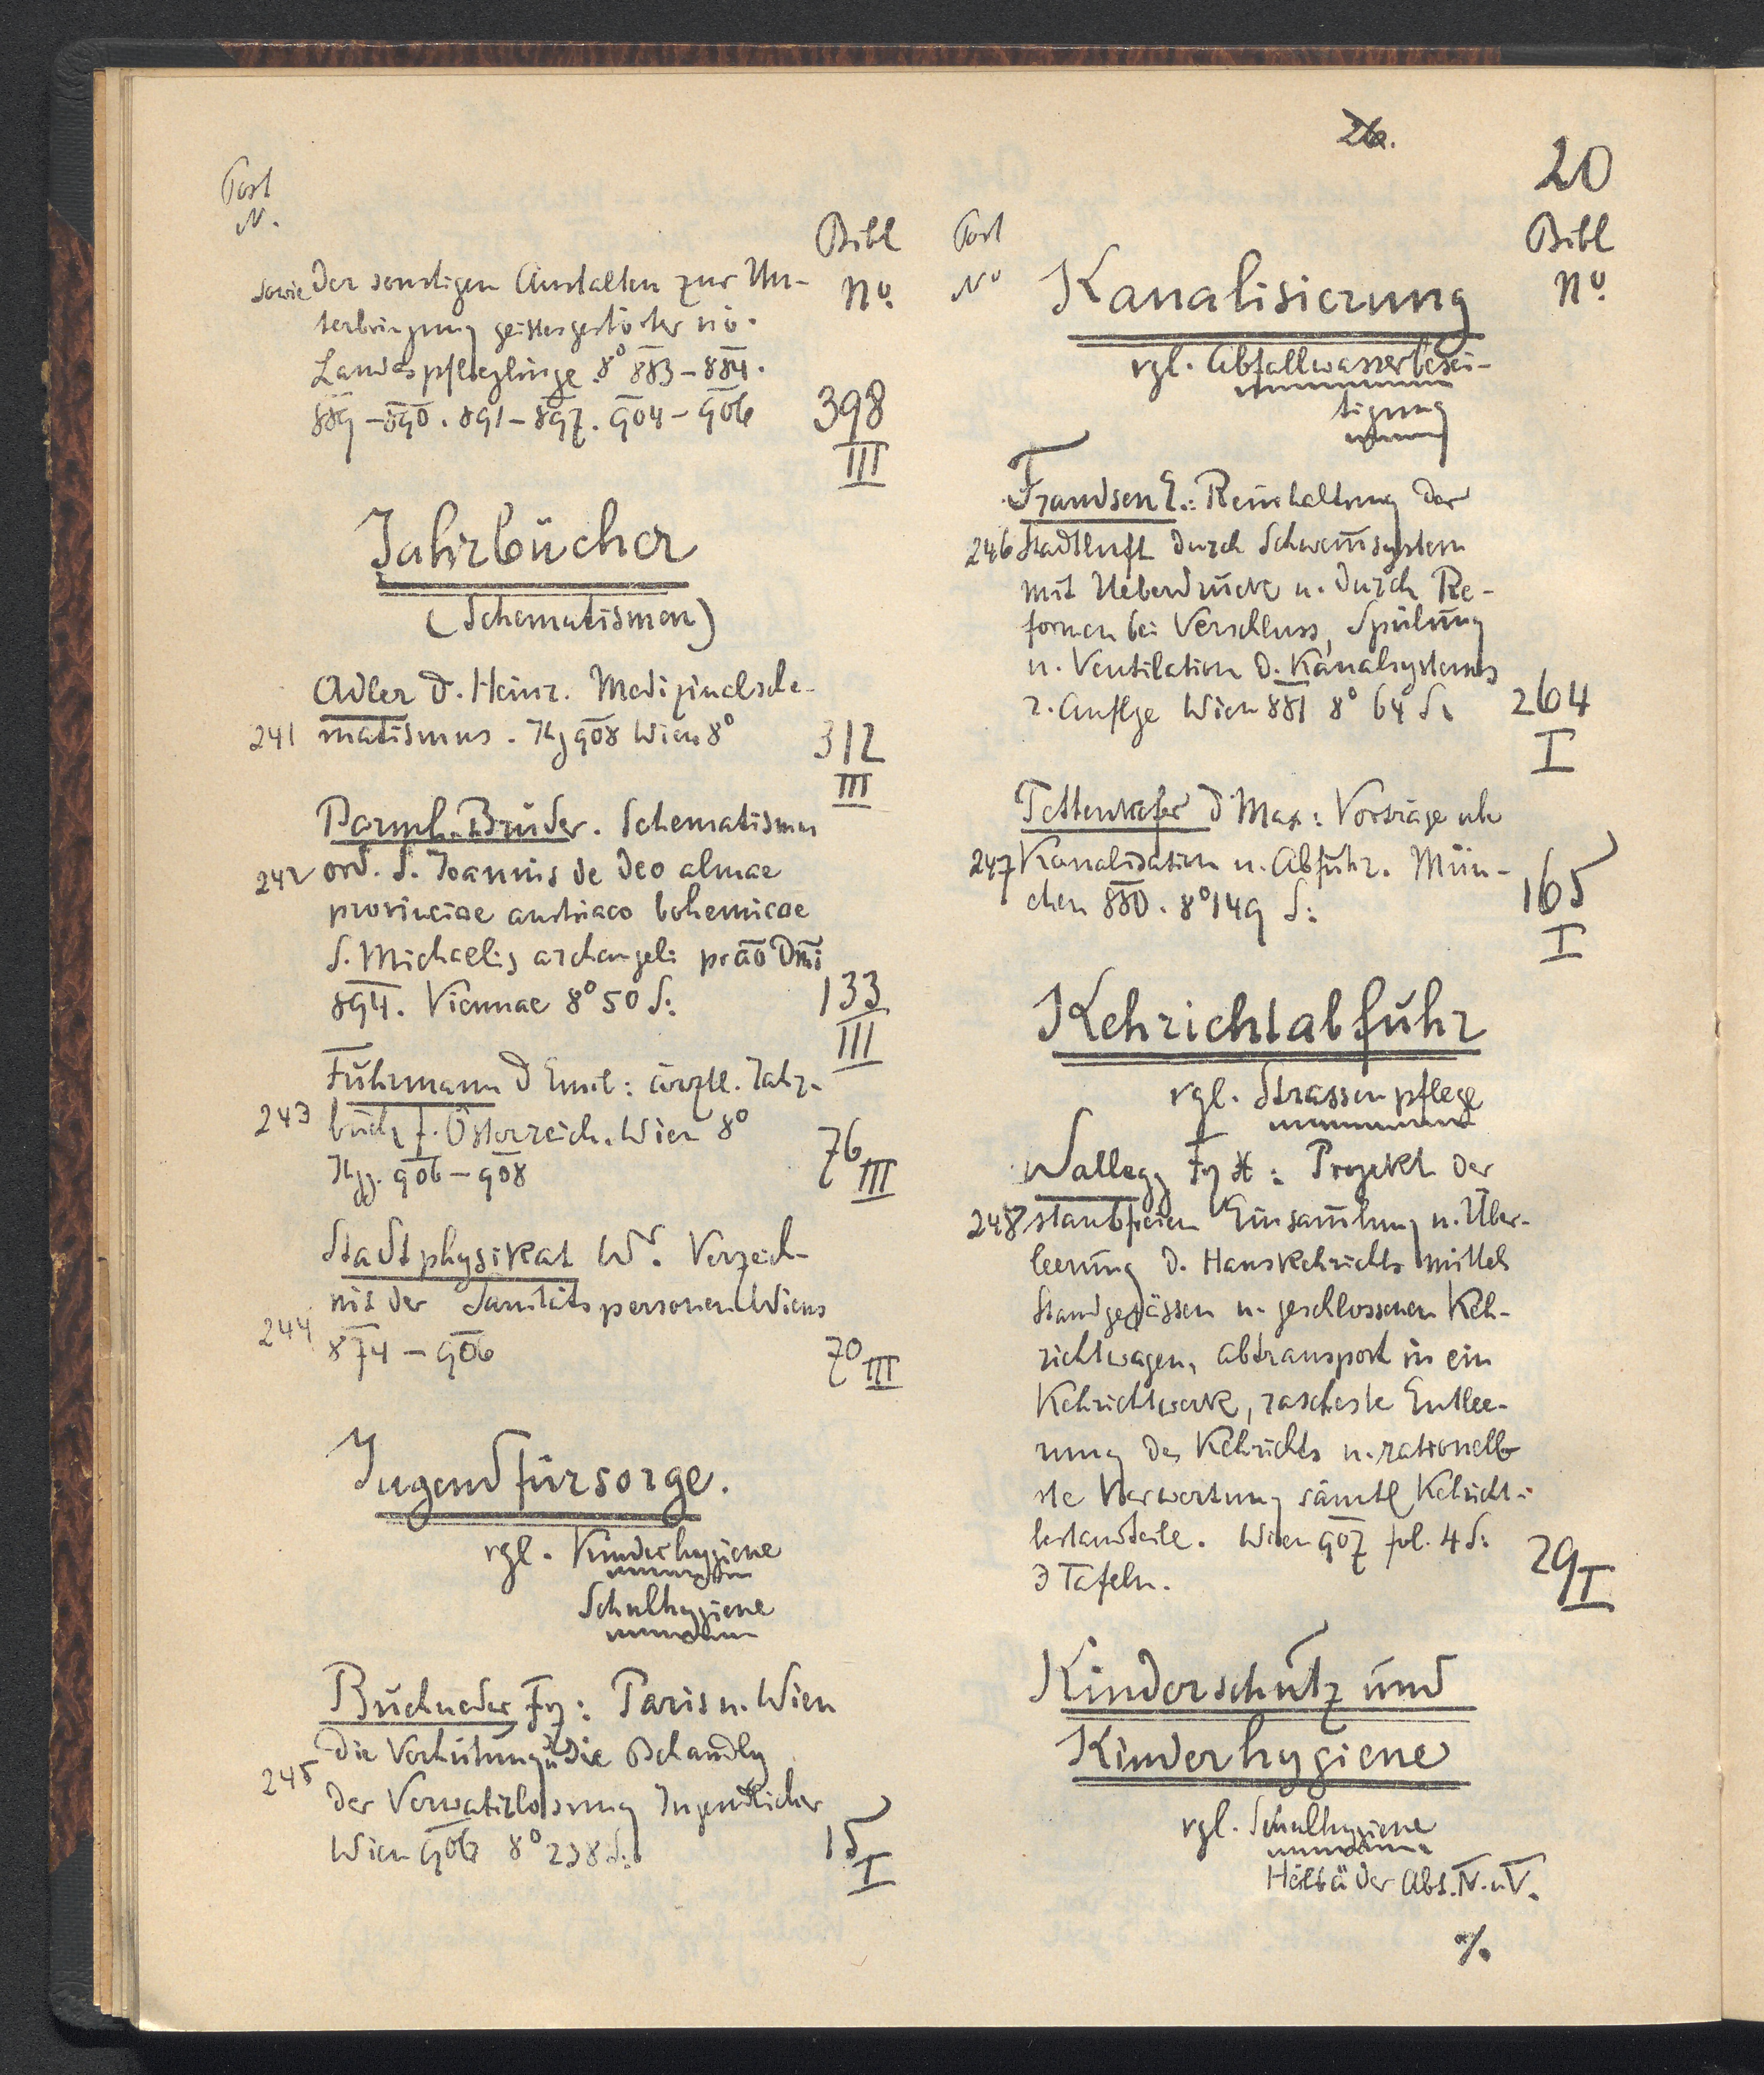 20
Post
N.
Bibl
No.
sowie der sonstigen Anstalten zur Un-
terbringung geistesgestörter nö.
Landespfleglinge. 8° 883-884.
889-890. 891-897. 904-906
398
III
Jahrbücher
(Schematismen)
Adler D. Heinr. Medizinalsche-
241 matismus. Jhg 908 Wien 8°
312
III
Barmh. Brüder. Schematismus
242 ord. S. Joannis de Deo almae
provinciae austriaco bohemicae
S. Michaelis archangeli pro aō Dm̄i
894. Viennae 8° 50 S.
133
III
Fuhrmann D Emil: ärztl. Jahr-
243 buch f. Österreich. Wien 8°
Jhgg. 906-908
76
III
Stadtphysikat Wr. Verzeich-
nis der Sanitätspersonen Wiens
244 874-906
70
III
Jugendfürsorge.
vgl. Kinderhygiene
Schulhygiene
Buchneder Fz: Paris u. Wien
die Verhütung u die Behandlg
245 der Verwahrlosung Jugendlicher
Wien 906 8° 238 S.
15
I
Post
No
Bibl
No.
Kanalisierung
vgl. Abfallwasserbesei-
tigung
Frandsen E.: Reinhaltung der
246 Stadtluft durch Schwem̄system
mit Ueberdruck u. durch Re-
formen bei Verschluss, Spülung
u. Ventilation d. Kanalsystems
2. Auflge Wien 881 8° 64 S.
264
I
Pettenkofer D Max: Vorträge üb
247 Kanalisation u. Abfuhr. Mün-
chen 880. 8° 149 S.
165
I
Kehrichtabfuhr
vgl. Strassenpflege
Wallegg Fz X: Projekt der
248 staubfreien Einsam̄lung u. Über-
leerung d. Hauskehrichts mittels
Standgefässen u. geschlossenen Keh-
richtwagen, Abtransport in ein
Kehrichtwerk, rascheste Entlee-
rung des Kehrichts u. rationell-
ste Verwertung sämtl Kehricht-
bestandteile. Wien 907 fol. 4 S.
3 Tafeln.
29
I
Kinderschutz und
Kinderhygiene
vgl. Schulhygiene
Heilbäder Abt. IV. u. V.
./.